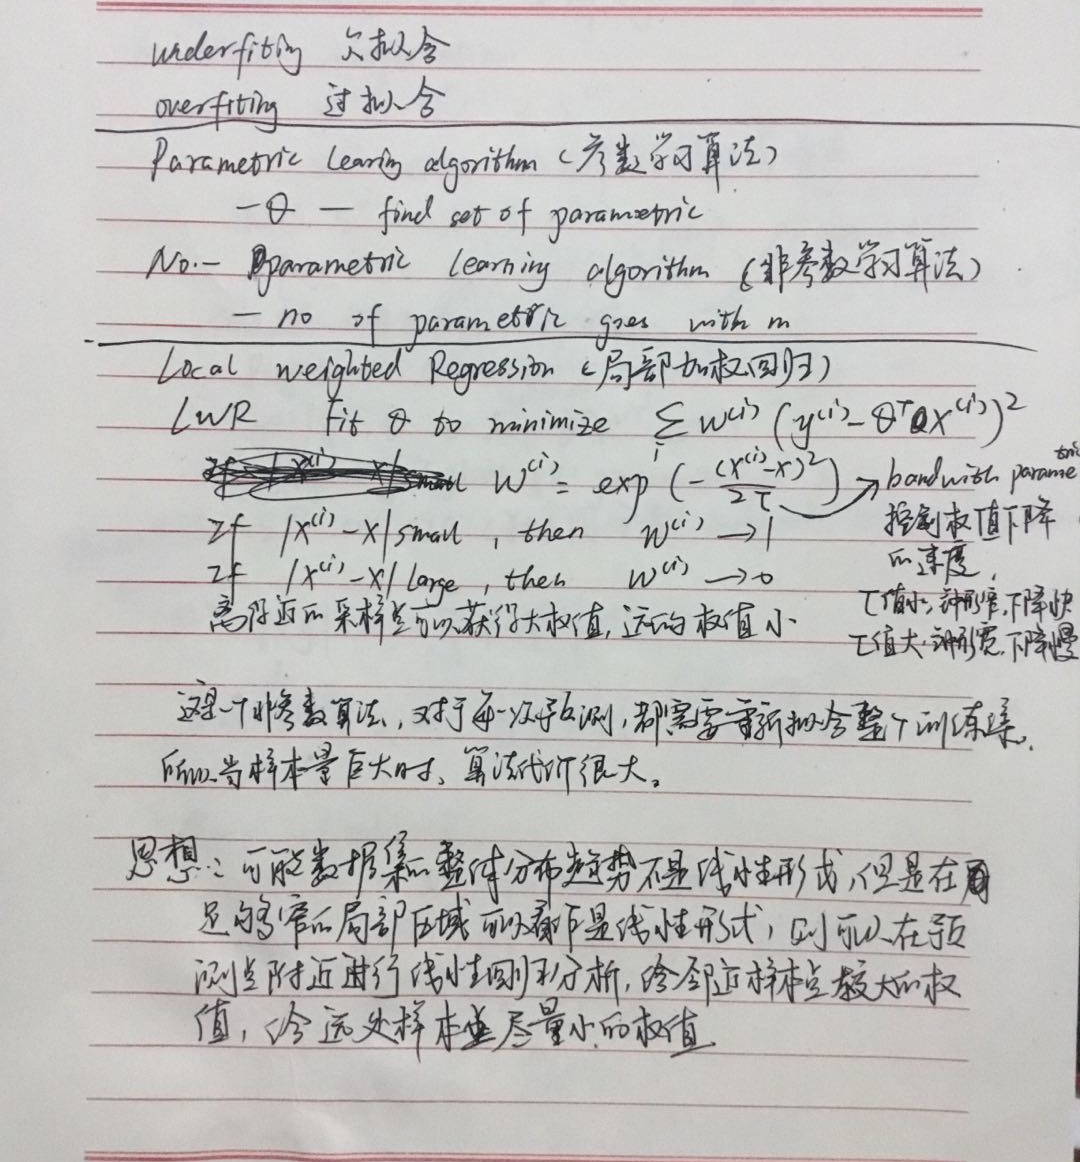 underfiting 欠拟合
overfiting 过拟合
Parametric Learing algorithm (参数学习算法)
- θ — find set of parametric
No.- parametric learning algorithm (非参数学习算法)
— no of parametric goes with m
Local weighted Regression (局部加权回归)
LWR Fit θ to minimize ∑ᵢ W⁽ⁱ⁾ (y⁽ⁱ⁾ - θᵀX⁽ⁱ⁾)²
W⁽ⁱ⁾ = exp (- (X⁽ⁱ⁾-X)² / 2τ) → bandwith parametric
控制权值下降
的速度,
τ值小,钟形窄,下降快
τ值大,钟形宽,下降慢
If |X⁽ⁱ⁾-X| small , then W⁽ⁱ⁾ → 1
If |X⁽ⁱ⁾-X| large , then W⁽ⁱ⁾ → 0
离得近的采样点可以获得大权值,远的权值小
这是一个非参数算法,对于每一次预测,都需要重新拟合整个训练集.
所以当样本量巨大时、算法代价很大。
思想:可能数据集的整体分布趋势不是线性形式,但是在
足够窄的局部区域可以看作是线性形式,则可以在预
测点附近进行线性回归分析,给邻近样本点较大的权
值,给远处样本点尽量小的权值